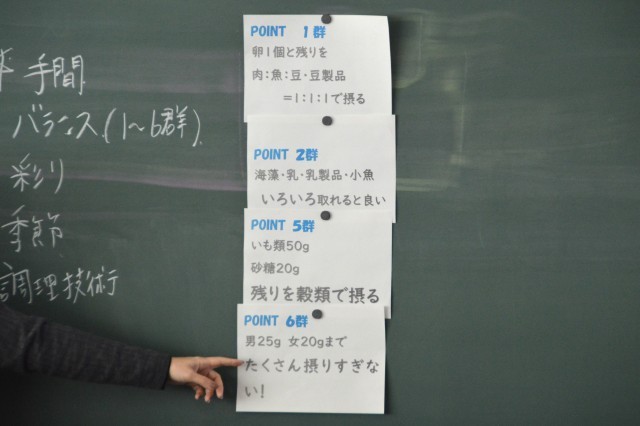 手間
バランス(1～6群)
彩り
季節
調理技術
POINT 1群
卵1個と残りを
肉:魚:豆・豆製品
=1:1:1で摂る
POINT 2群
海藻・乳・乳製品・小魚
いろいろ取れると良い
POINT 5群
いも類50g
砂糖20g
残りを穀類で摂る
POINT 6群
男25g 女20gまで
たくさん摂りすぎな
い!